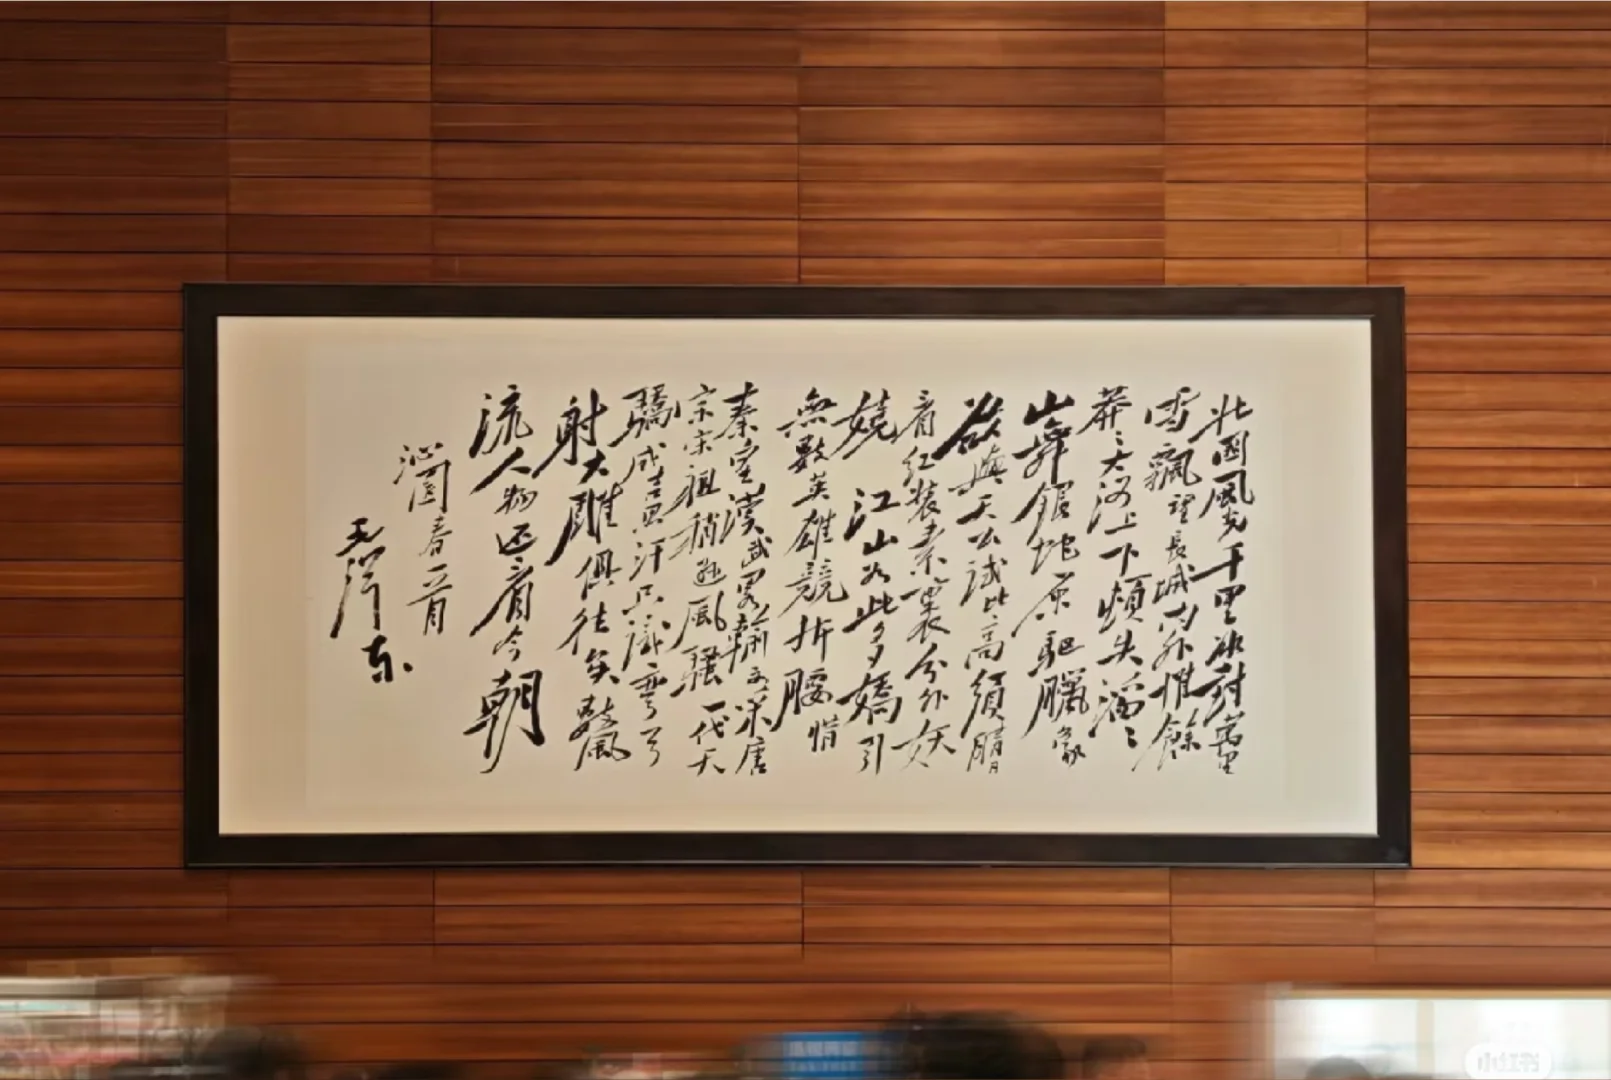 北國風光千里冰封萬里
雪飄望長城內外惟餘
莽〻大河上下頓失滔〻
山舞銀蛇原驅臘象
欲與天公試比高須晴日
看紅裝素裹分外妖
嬈江山如此多嬌引
無數英雄競折腰惜
秦皇漢武畧輸文采唐
宗宋祖稍逊風騷一代天
驕成吉思汗只識彎弓
射大雕俱往矣數風
流人物还看今朝
沁園春一首
毛澤东
小红书